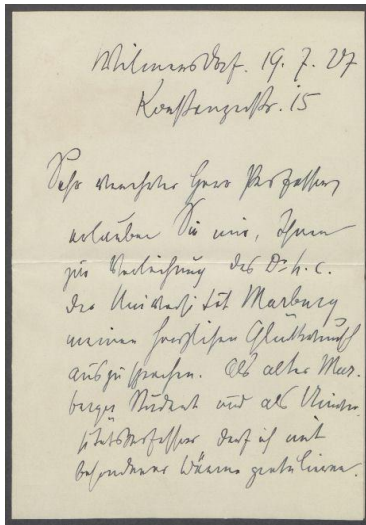 Wilmersdorf. 19. 7. 27
Konstanzerstr. 15
Sehr verehrter Herr Professor,
erlauben Sie mir, Ihnen
zur Verleihung des Dr. h. c.
der Universität Marburg
meinen herzlichen Glückwunsch
auszusprechen. Als alter Mar-
burger Student und als
darf ich mit
besonderer Wärme gratulieren.